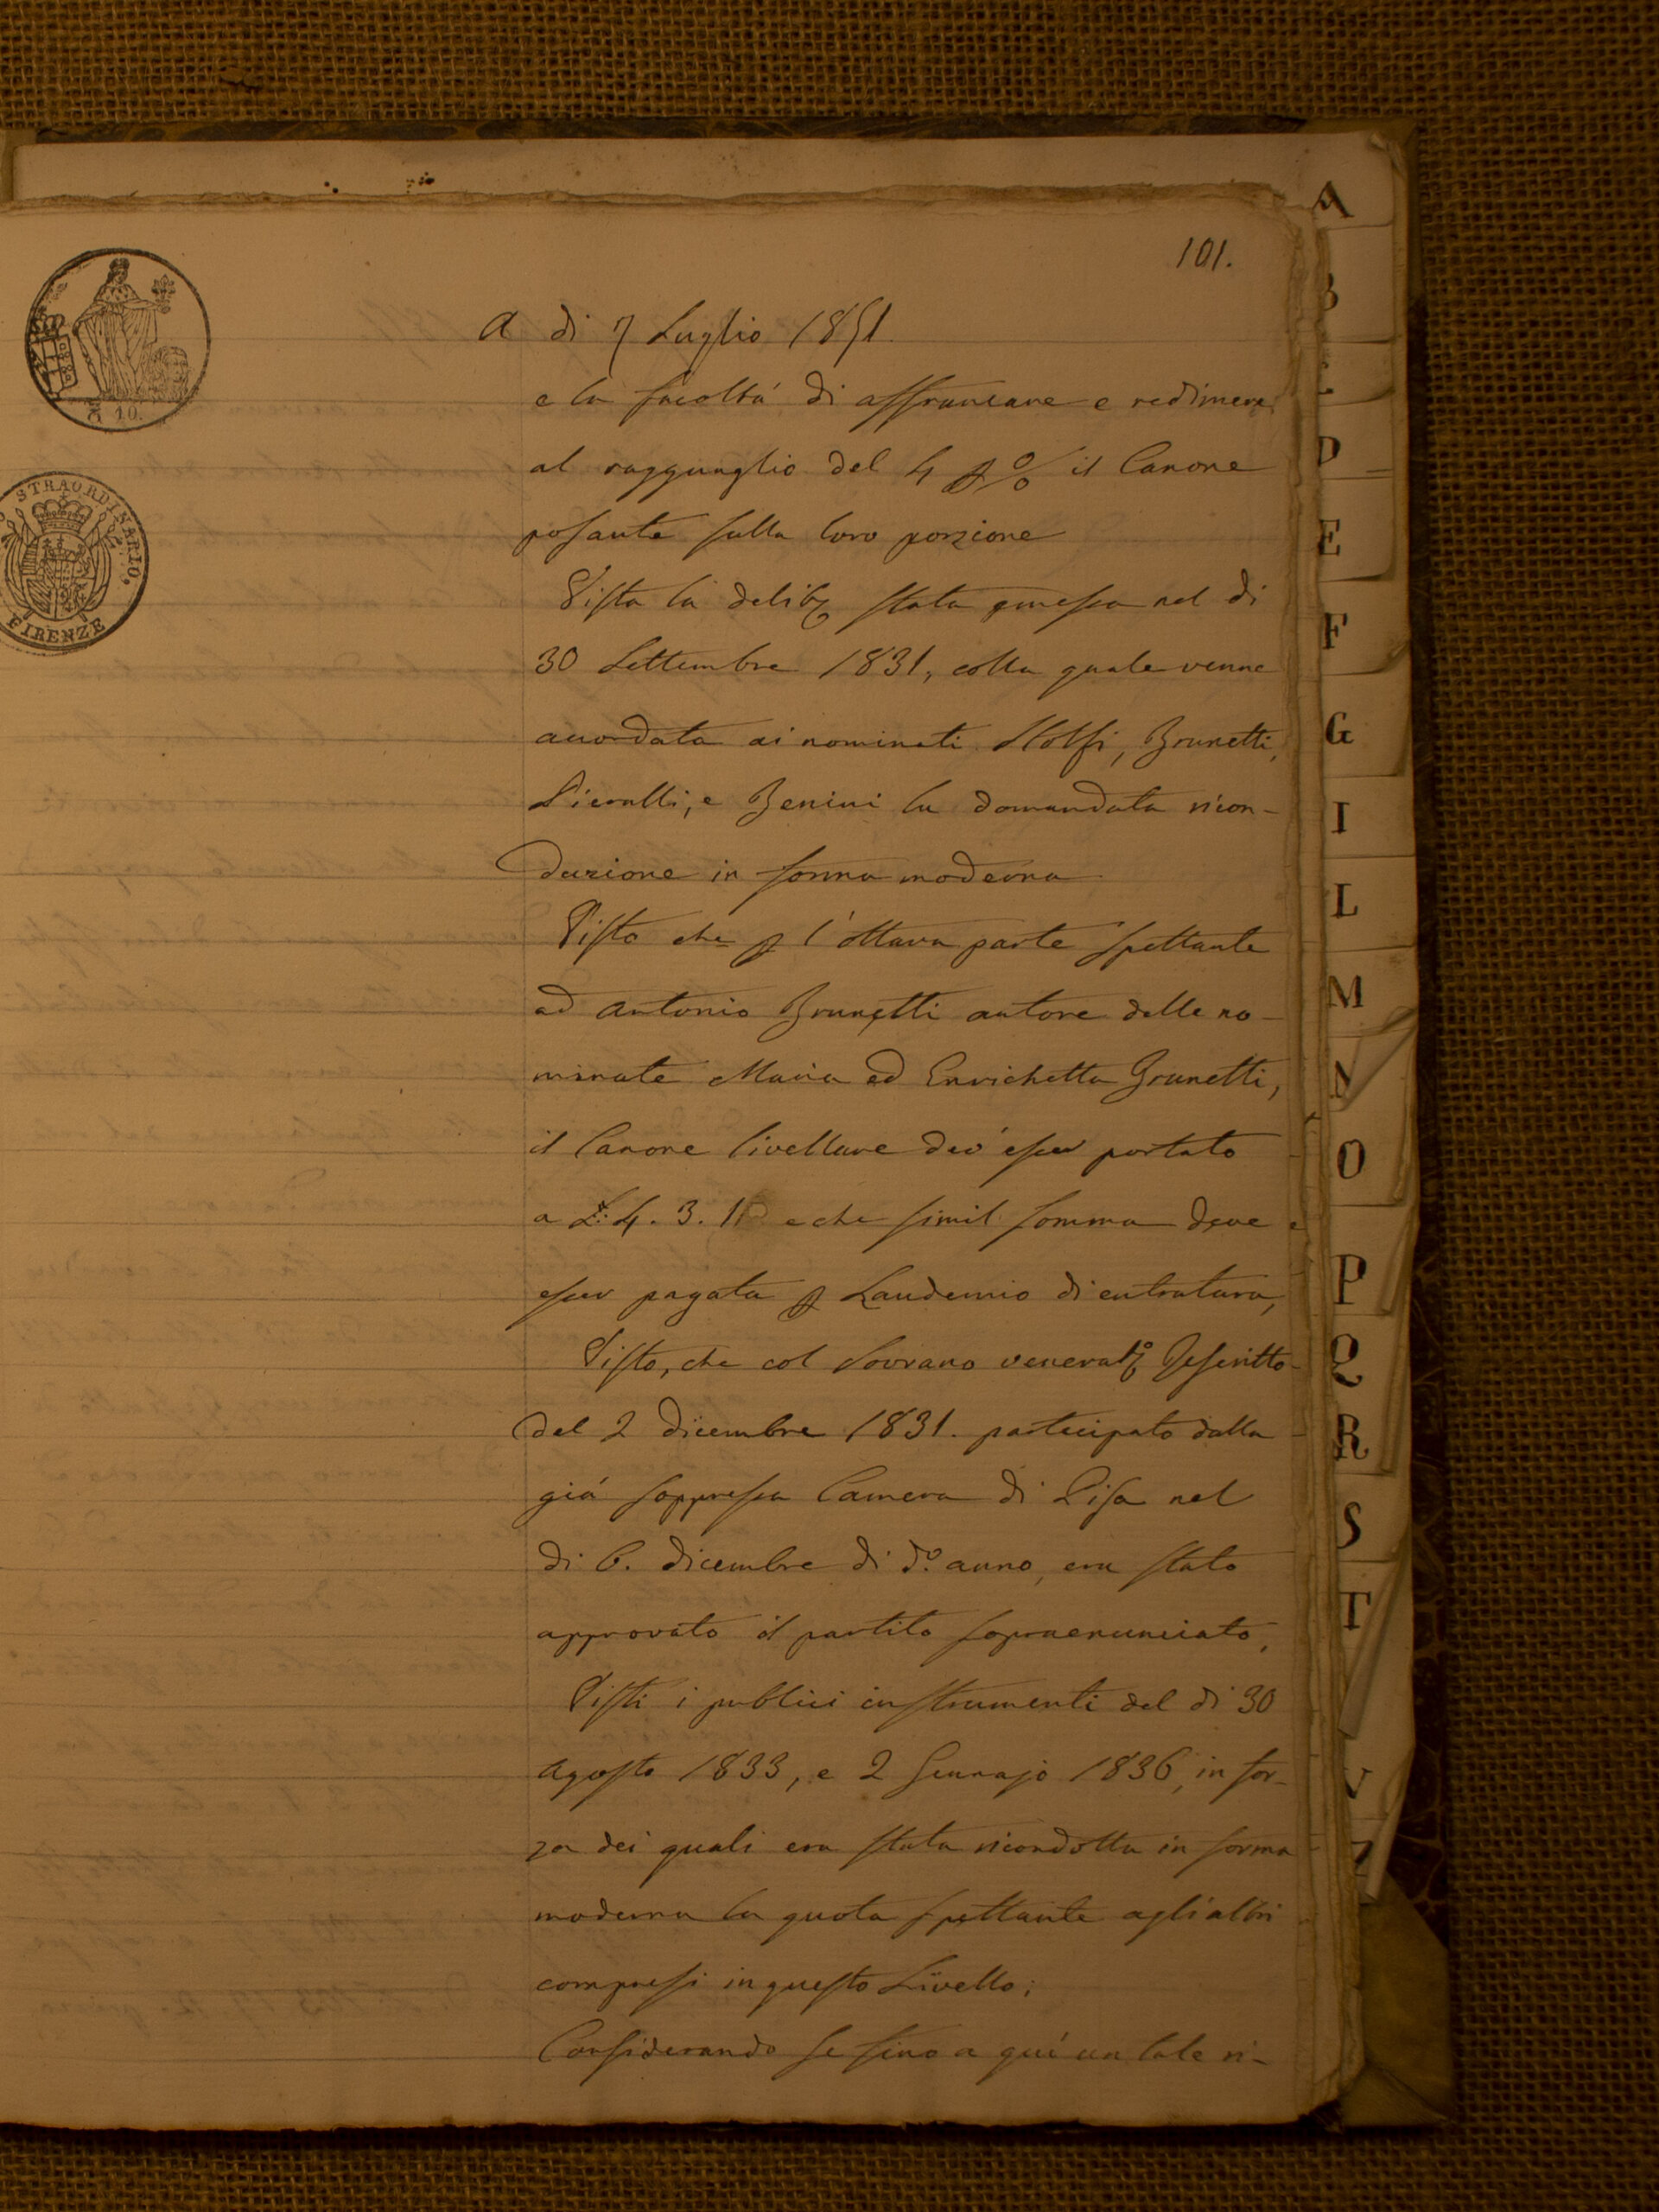 101.
A dì 7 Luglio 1851.
e la facoltá di affrancare e redimere
al ragguaglio del 4 p% il Canone
posante sulla loro porzione
Vista la delibe stata emessa nel di
30 Settembre 1831, colla quale venne
accordata ai nominati Stolfi, Brunetti,
Pieralli, e Benini la domandata ricon-
duzione in forma moderna
Visto che p l'ottava parte spettante
ad Antonio Brunetti autore delle no-
minate Maria ed Enrichetta Brunetti,
il Canone livellare dev'esser portato
a L: 4. 3. e che simil somma deve
esser pagata p Laudemio di entratura,
Visto, che col Sovrano venerato Rescritto
del 2 dicembre 1831. partecipato dalla
giá soppressa Camera di Pisa nel
di 6. dicembre di do. anno, era stato
approvato il partito sopraenunciato,
Visti i publici instrumenti del di 30
Agosto 1833, e 2 Gennajo 1836, in for-
za dei quali era stata ricondotta in forma
moderna la quota spettante agli altri
compresi in questo Livello;
Considerando se sino a qui un tale ri-
10.
STRAORDINARIO.
FIRENZE
A
B
C
D
E
F
G
I
L
M
N
O
P
Q
R
S
T
V
Z